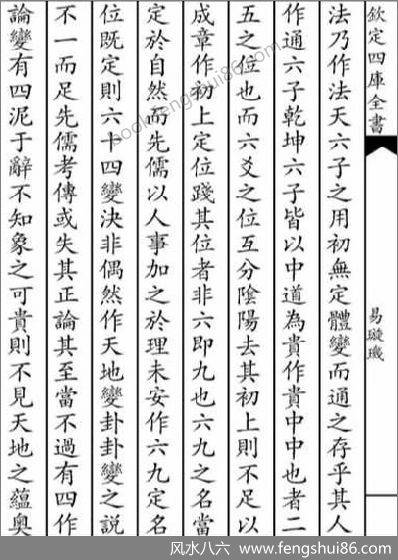 欽定四庫全書
易璇璣
法乃作法天六子之用初無定體變而通之存乎其人
作通六子乾坤六子皆以中道為貴作貴中中也者二
五之位也而六爻之位互分陰陽去其初上則不足以
成章作初上定位踐其位者非六即九也六九之名當
定於自然而先儒以人事加之於理未安作六九定名
位既定則六十四變決非偶然作天地變卦卦變之說
不一而足先儒考傳或失其正論其至當不過有四作
論變有四泥于辭不知象之可貴則不見天地之蘊奧
book.fengshui86.com
风水八六 www.fengshui86.com